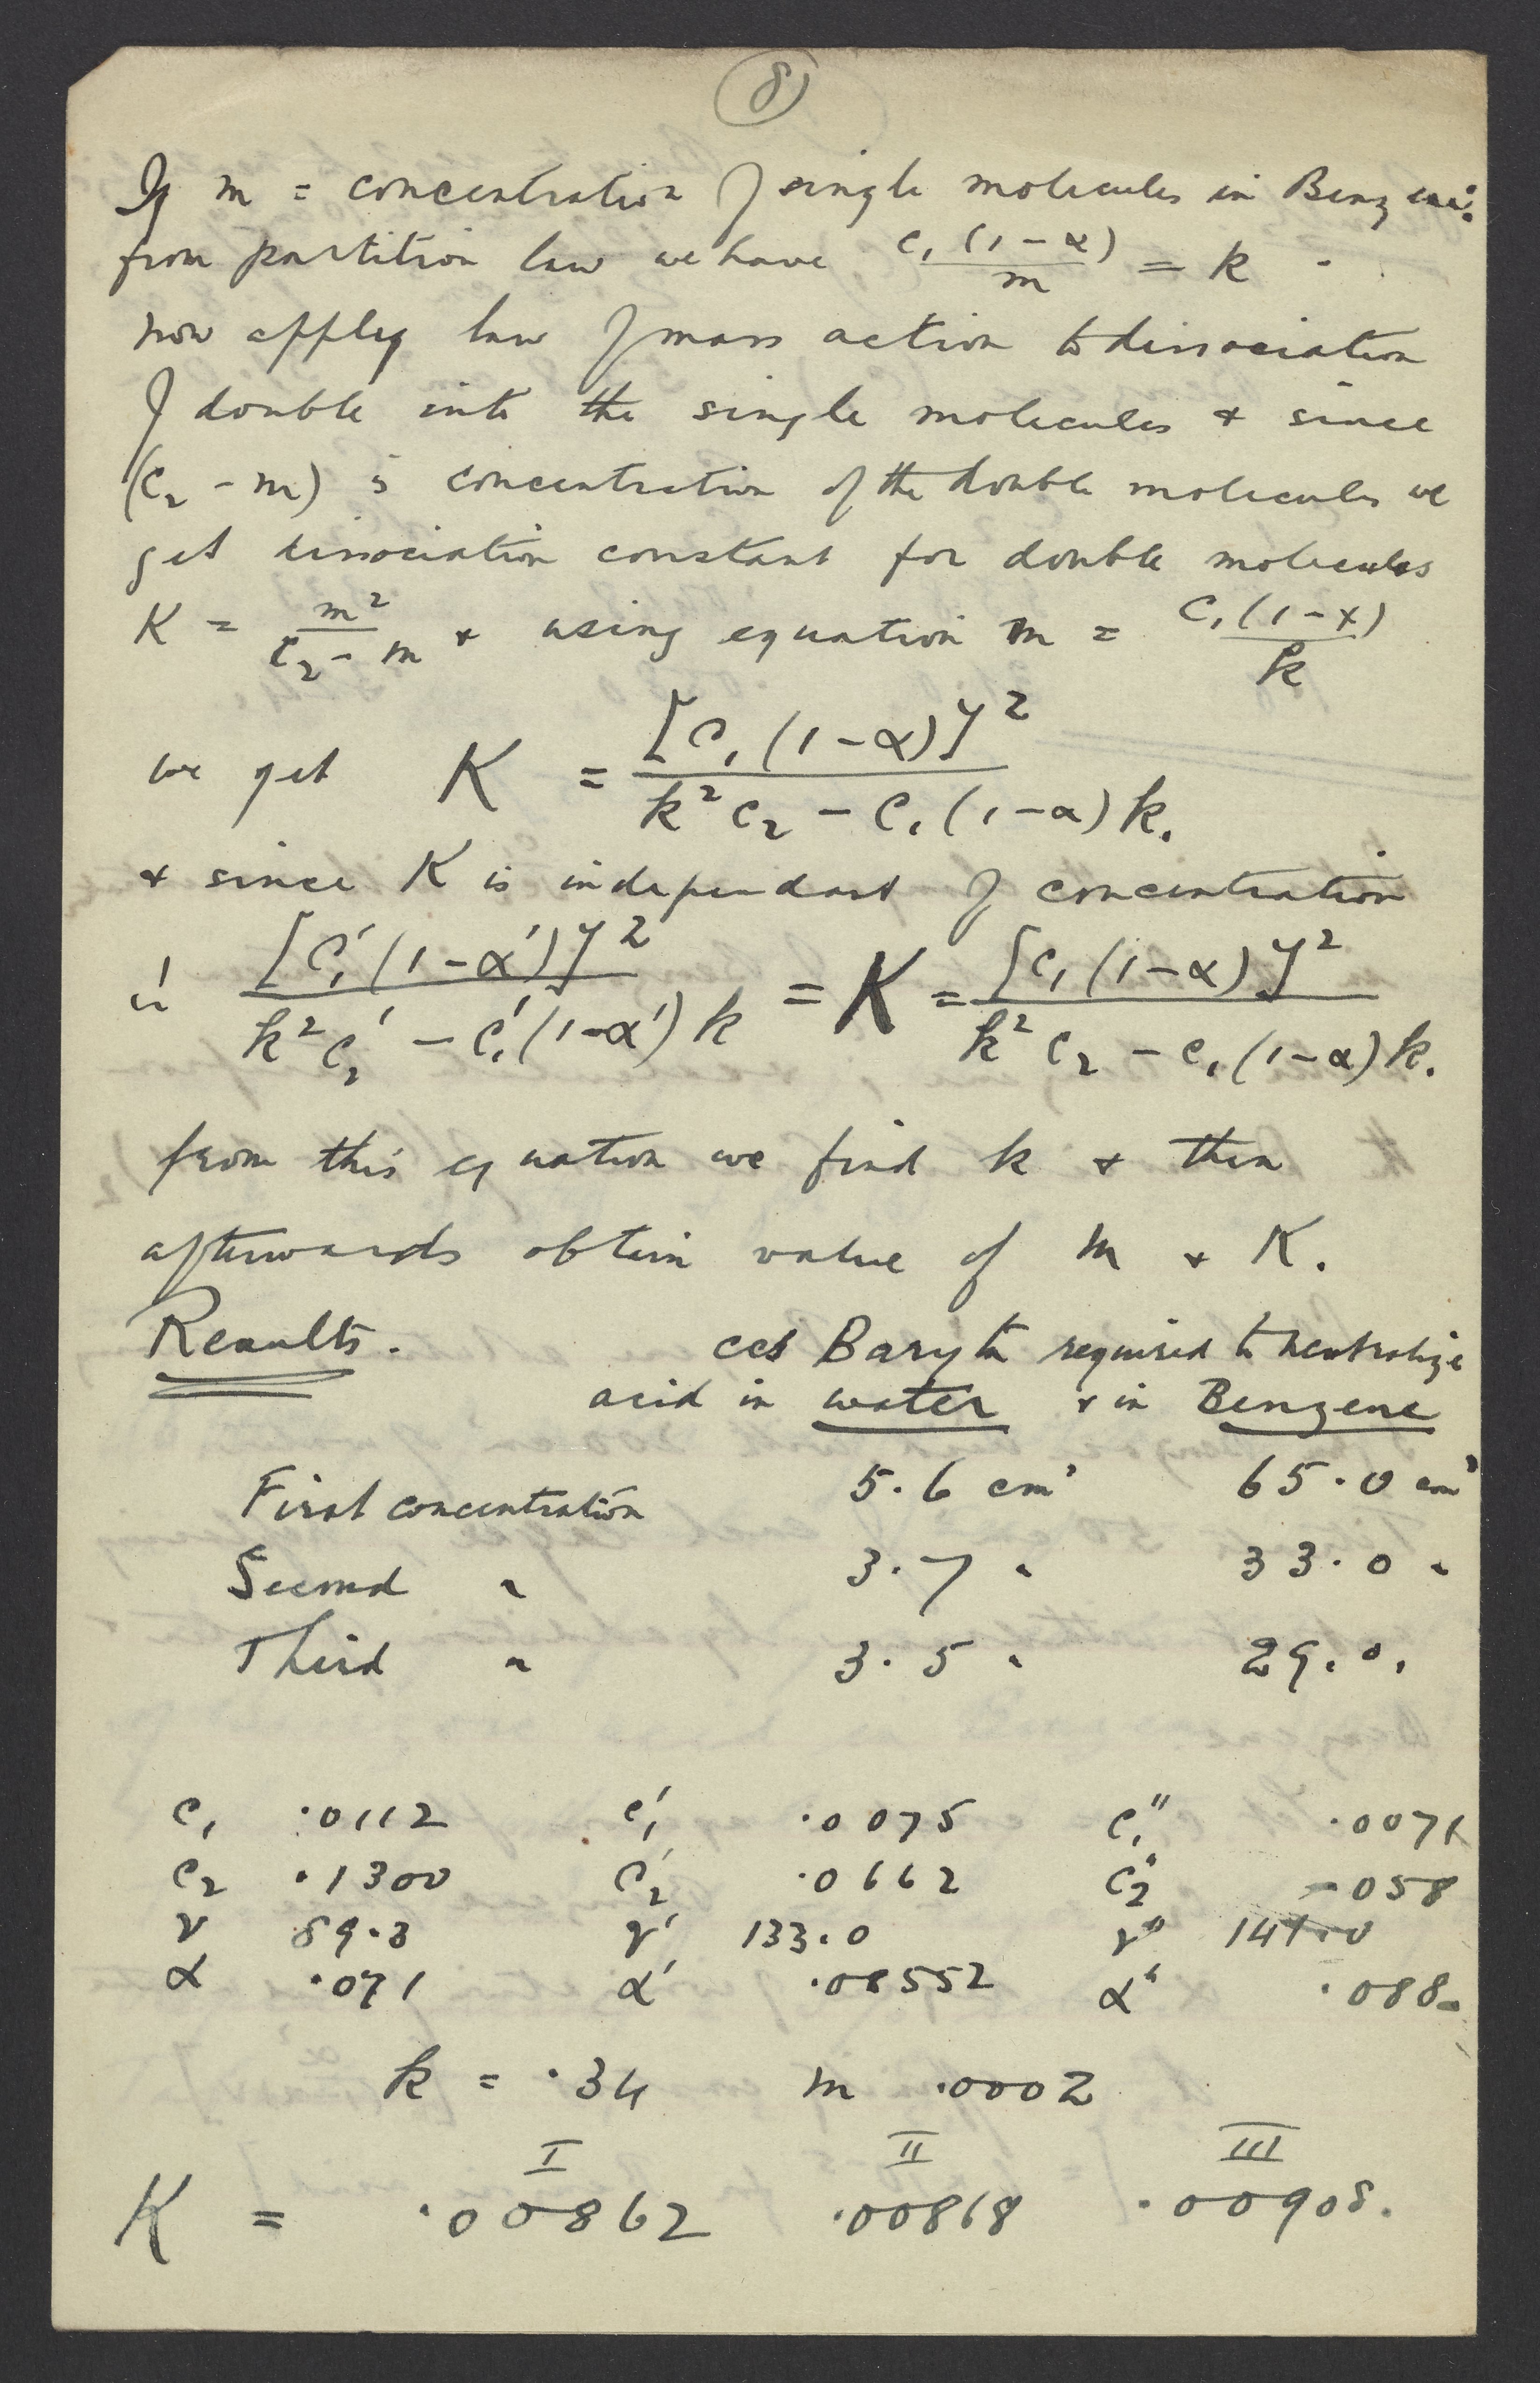 8
If m = concentration of single molecules in Benzene:
from partition law we have c₁(1-α)/m = k -
now apply law of mass action to dissociation
of double into the single molecules & since
(c₂ - m) is concentration of the double molecules we
get dissociation constant for double molecules
K = m²/(c₂ - m) & using equation m = c₁(1-x)/k
we get K = [c₁(1-α)]²/(k²c₂ - c₁(1-α)k.
& since K is independant of concentration
[c₁'(1-α')]²/(k²c₂' - c₁'(1-α')k = K = [c₁(1-α)]²/(k²c₂ - c₁(1-α)k.
from this equation we find k & then
afterwards obtain value of m & K.
Results. ccs Baryta required to neutralize
acid in water & in Benzene
First concentration 5.6 cm³ 65.0 cm³
Second " 3.7 " 33.0 "
Third " 3.5 " 29.0.
c₁ .0112 c₁' .0075 c₁" .0071
c₂ .1300 c₂' .0662 c₂" .058
v 89.3 v' 133.0 v"
α .071 α' .08552 α" .088
k = .34 m .0002
I II III
K = .00862 .00868 .00908.